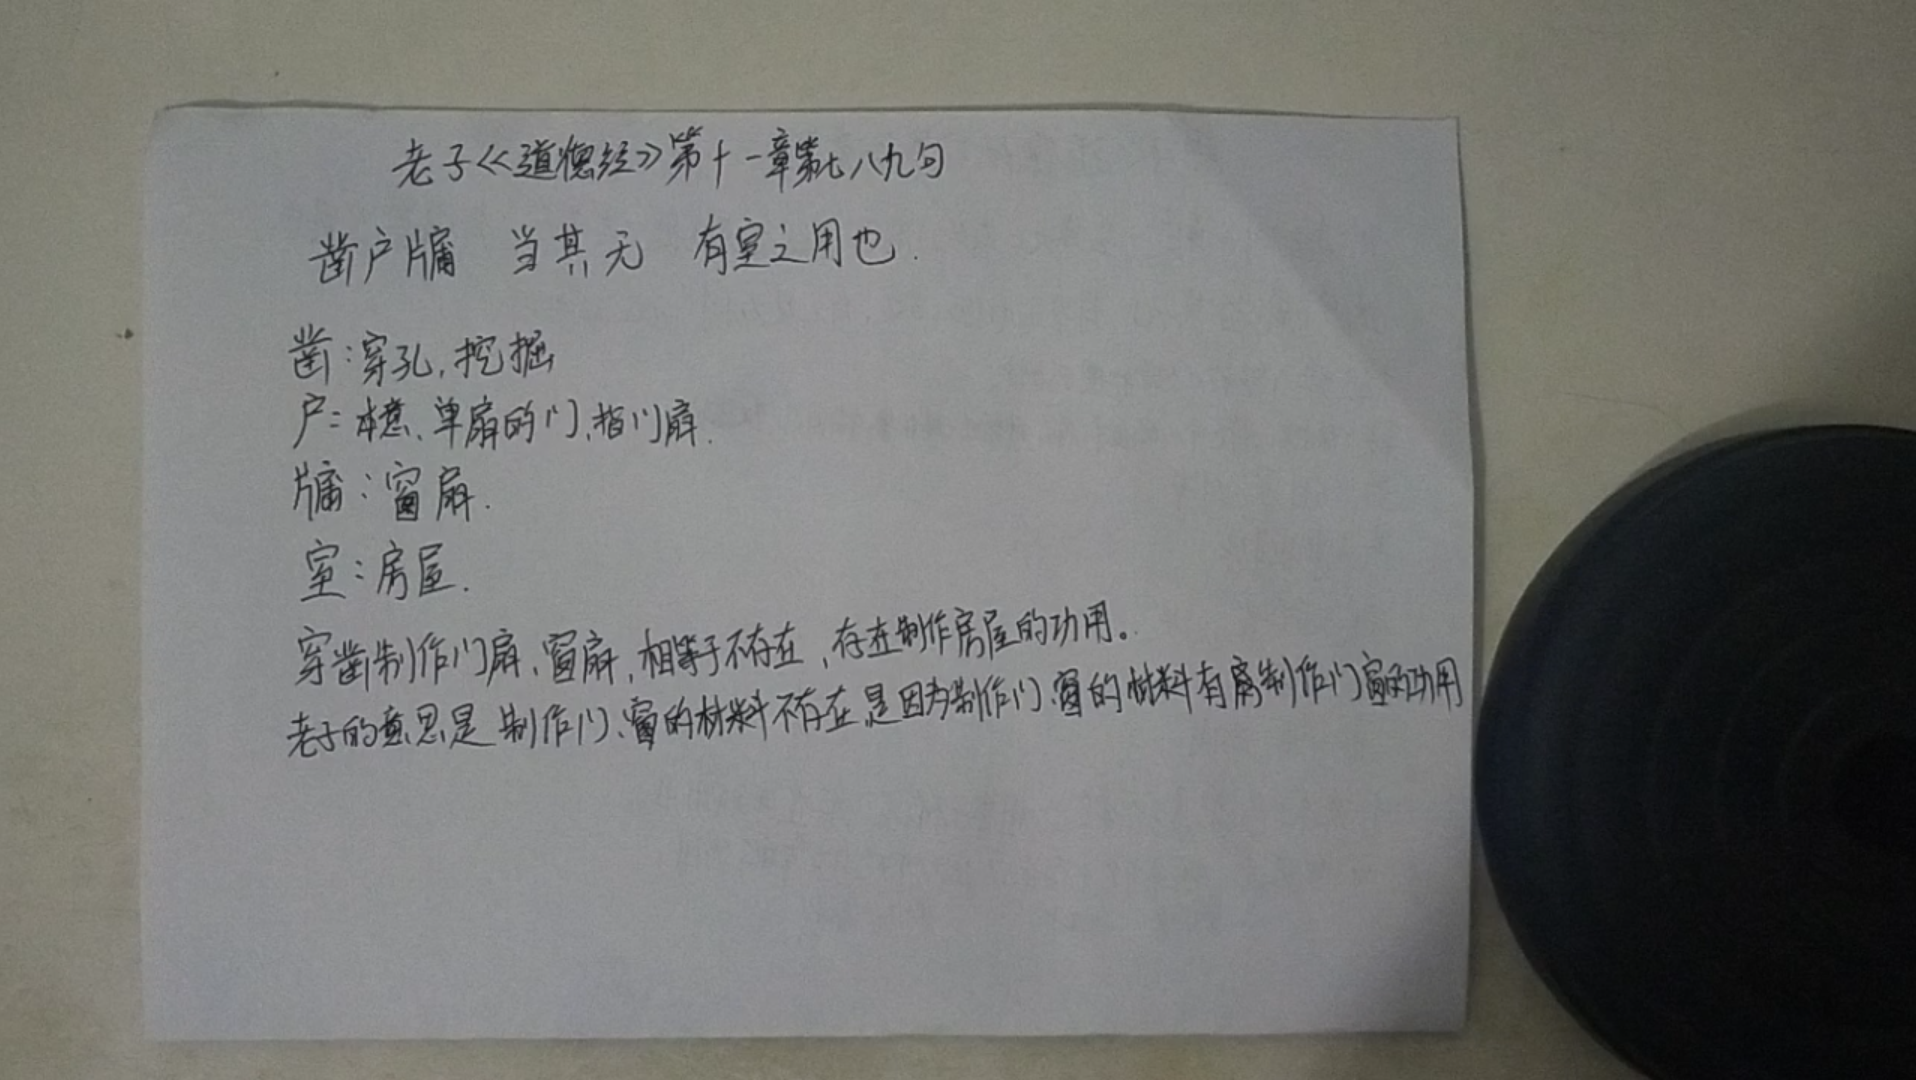 老子《道德经》第十一章第七八九句
凿户牖 当其无 有室之用也.
凿:穿孔,挖掘
户:本意、单扇的门,指门扇.
牖:窗扇.
室:房屋.
穿凿制作门扇、窗扇,相等于不存在,存在制作房屋的功用。
老子的意思是制作门、窗的材料不存在,是因为制作门、窗的材料有制作门窗的功用